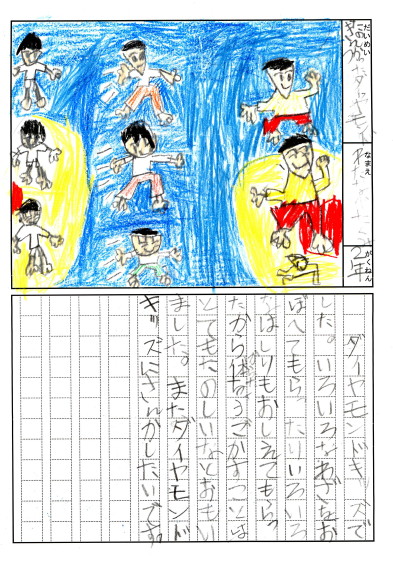 だいめい
なまえ
がくねん
2年
ダイヤモンドキッズで
した。いろいろなわざをお
ぼへてもらったりいろいろ
なはしりもおしえてもらっ
たから体をうごかすことは
とてもたのしいなとおもい
ました。またダイヤモンド
キッズにさんかしたいです。